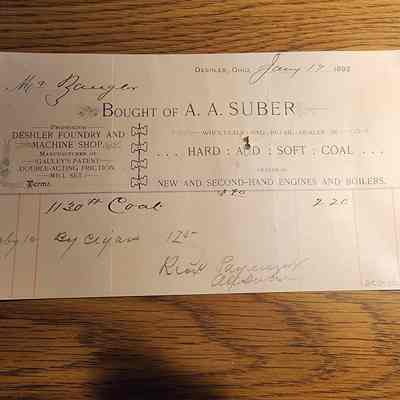 Deshler, Ohio, Jany 17 1892
Mr Banger
Bought of A. A. SUBER
Proprietor
DESHLER FOUNDRY AND
MACHINE SHOP.
Manufacturer of
GAULEY'S PATENT
DOUBLE-ACTING FRICTION
MILL SET.
Terms
WHOLESALE AND RETAIL DEALER IN
. . . HARD : AND : SOFT : COAL . . .
NEW AND SECOND-HAND ENGINES AND BOILERS.
1130 Coal 2.20
By Cigars 125
Payment